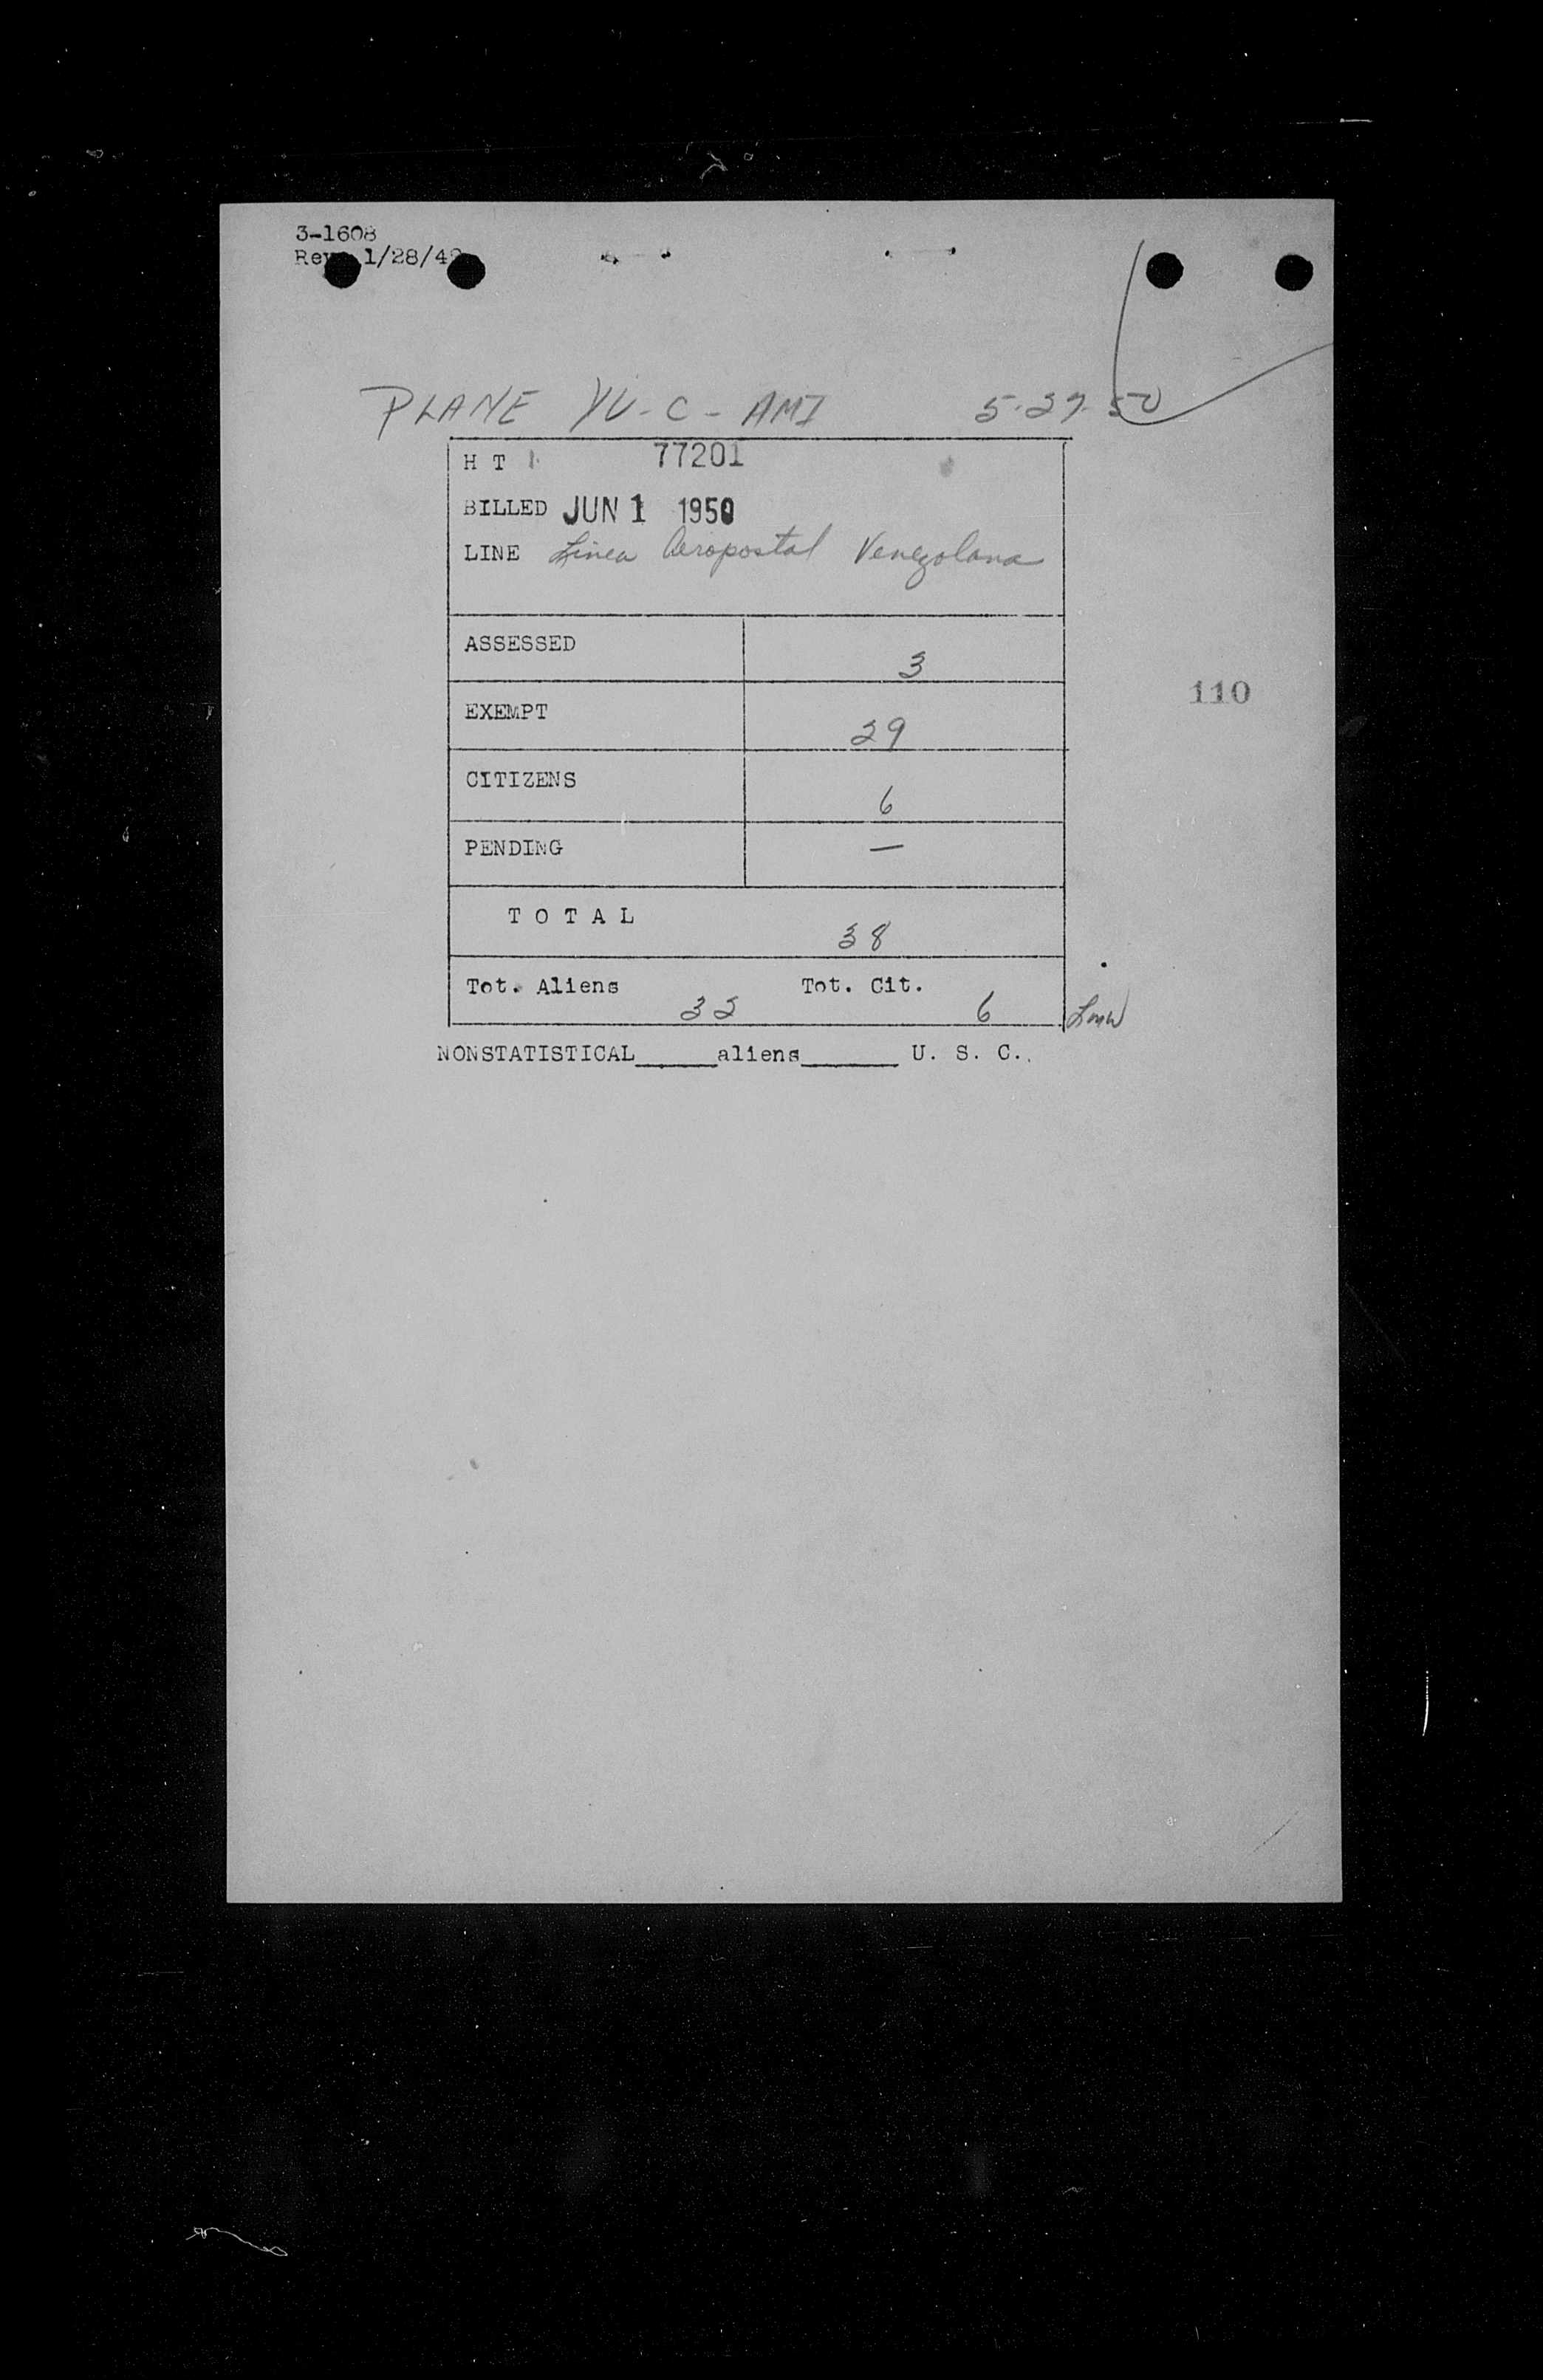 3-1608
Rev. 1/28/49
PLANE YV-C-AMI 5-27-50
H T 77201
BILLED JUN 1 1950
LINE Linea Aeropostal Venezolana
ASSESSED 3
EXEMPT 29
110
CITIZENS 6
PENDING —
T O T A L 38
Tot. Aliens 32 Tot. Cit. 6 LMW
NONSTATISTICAL______aliens_______ U. S. C.